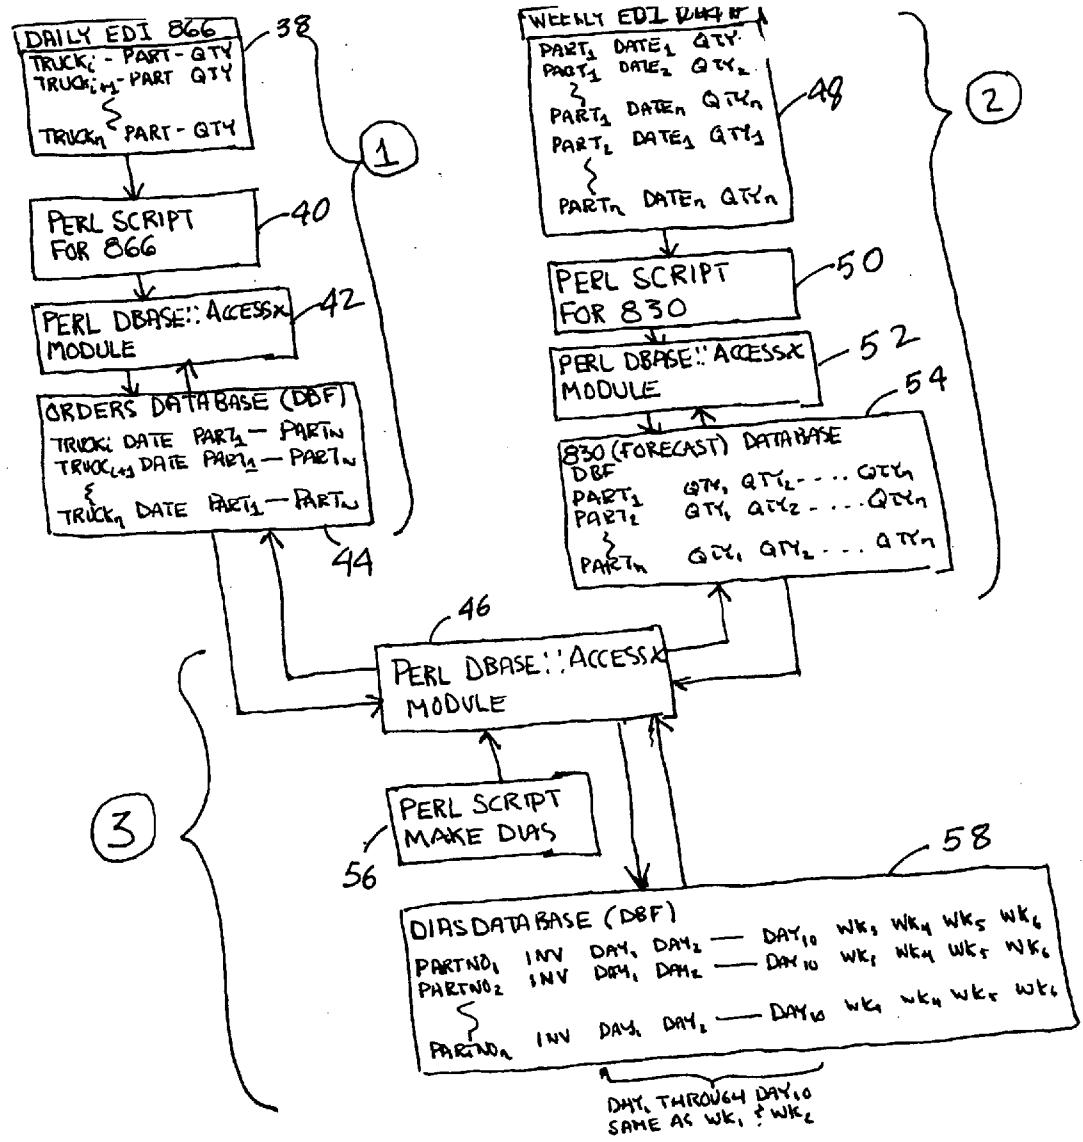 DAILY EDI 866
38
TRUCKi - PART - QTY
TRUCKi+1 - PART QTY
TRUCKn PART - QTY
1
PERL SCRIPT
FOR 866
40
PERL DBASE::ACCESSX
MODULE
42
ORDERS DATABASE (DBF)
TRUCKi DATE PART1 — PARTN
TRUCKi+1 DATE PART1 — PARTN
TRUCKn DATE PART1 — PARTN
44
WEEKLY EDI
PART1 DATE1 QTY
PART1 DATE2 QTY2
PART1 DATEn QTYn
PART2 DATE1 QTY1
PARTn DATEn QTYn
48
2
PERL SCRIPT
FOR 830
50
PERL DBASE::ACCESSX
MODULE
52
54
830 (FORECAST) DATABASE
DBF
PART1 QTY1 QTY2 - .... QTYn
PART2 QTY1 QTY2 - .... QTYn
PARTn QTY1 QTY2 .... QTYn
46
PERL DBASE::ACCESSX
MODULE
3
PERL SCRIPT
MAKE DIAS
56
58
DIAS DATABASE (DBF)
PARTNO1 INV DAY1 DAY2 — DAY10 WK3 WK4 WK5 WK6
PARTNO2 INV DAY1 DAY2 — DAY10 WK3 WK4 WK5 WK6
PARTNOn INV DAY1 DAY2 — DAY10 WK4 WK5 WK6
DAY1 THROUGH DAY10
SAME AS WK1 & WK2